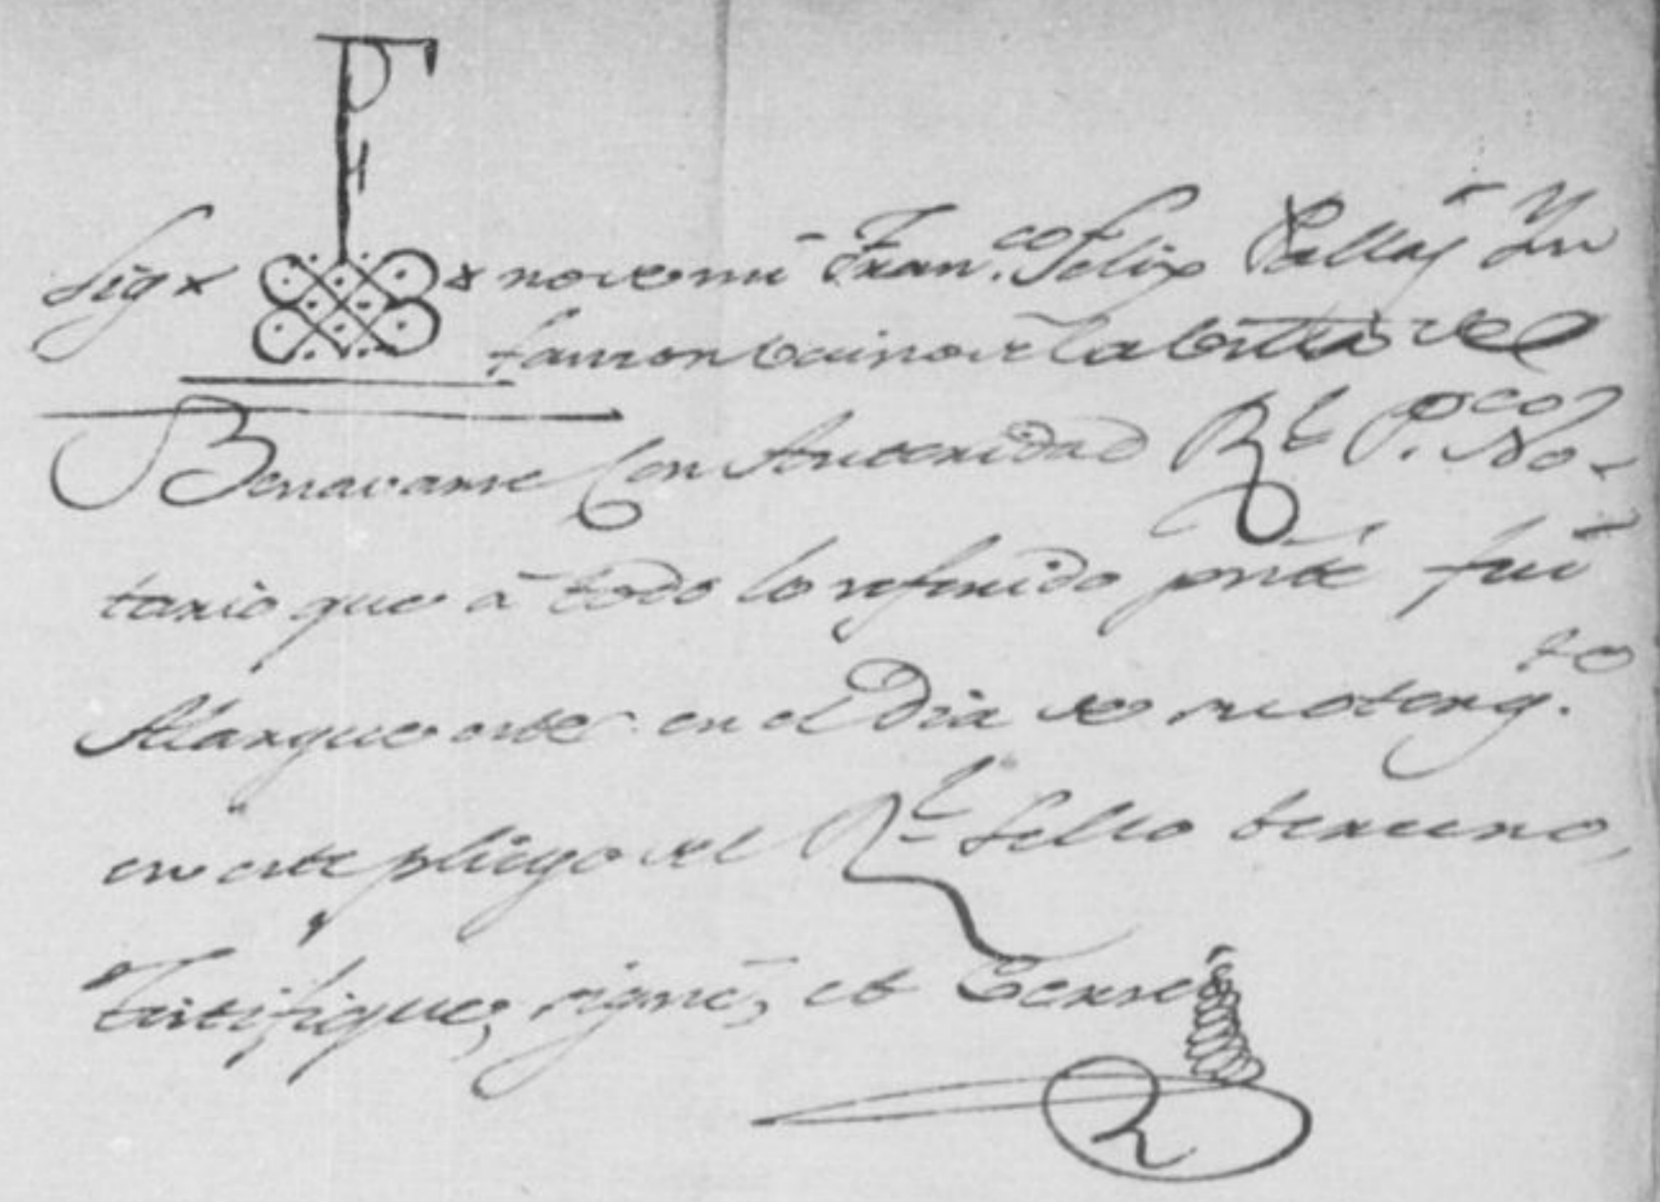 Sig x x no de mi Fran.co Felix Pallás Yn
fanzon vecino de la villa del
Benavarre Con Autoridad Rl P.co No-
tario que á todo lo referido pnte fui
Alargue este en el Dia de su otorg.to
en este pliego del Rl Sello terzero,
Testifique, signé, et Cerré